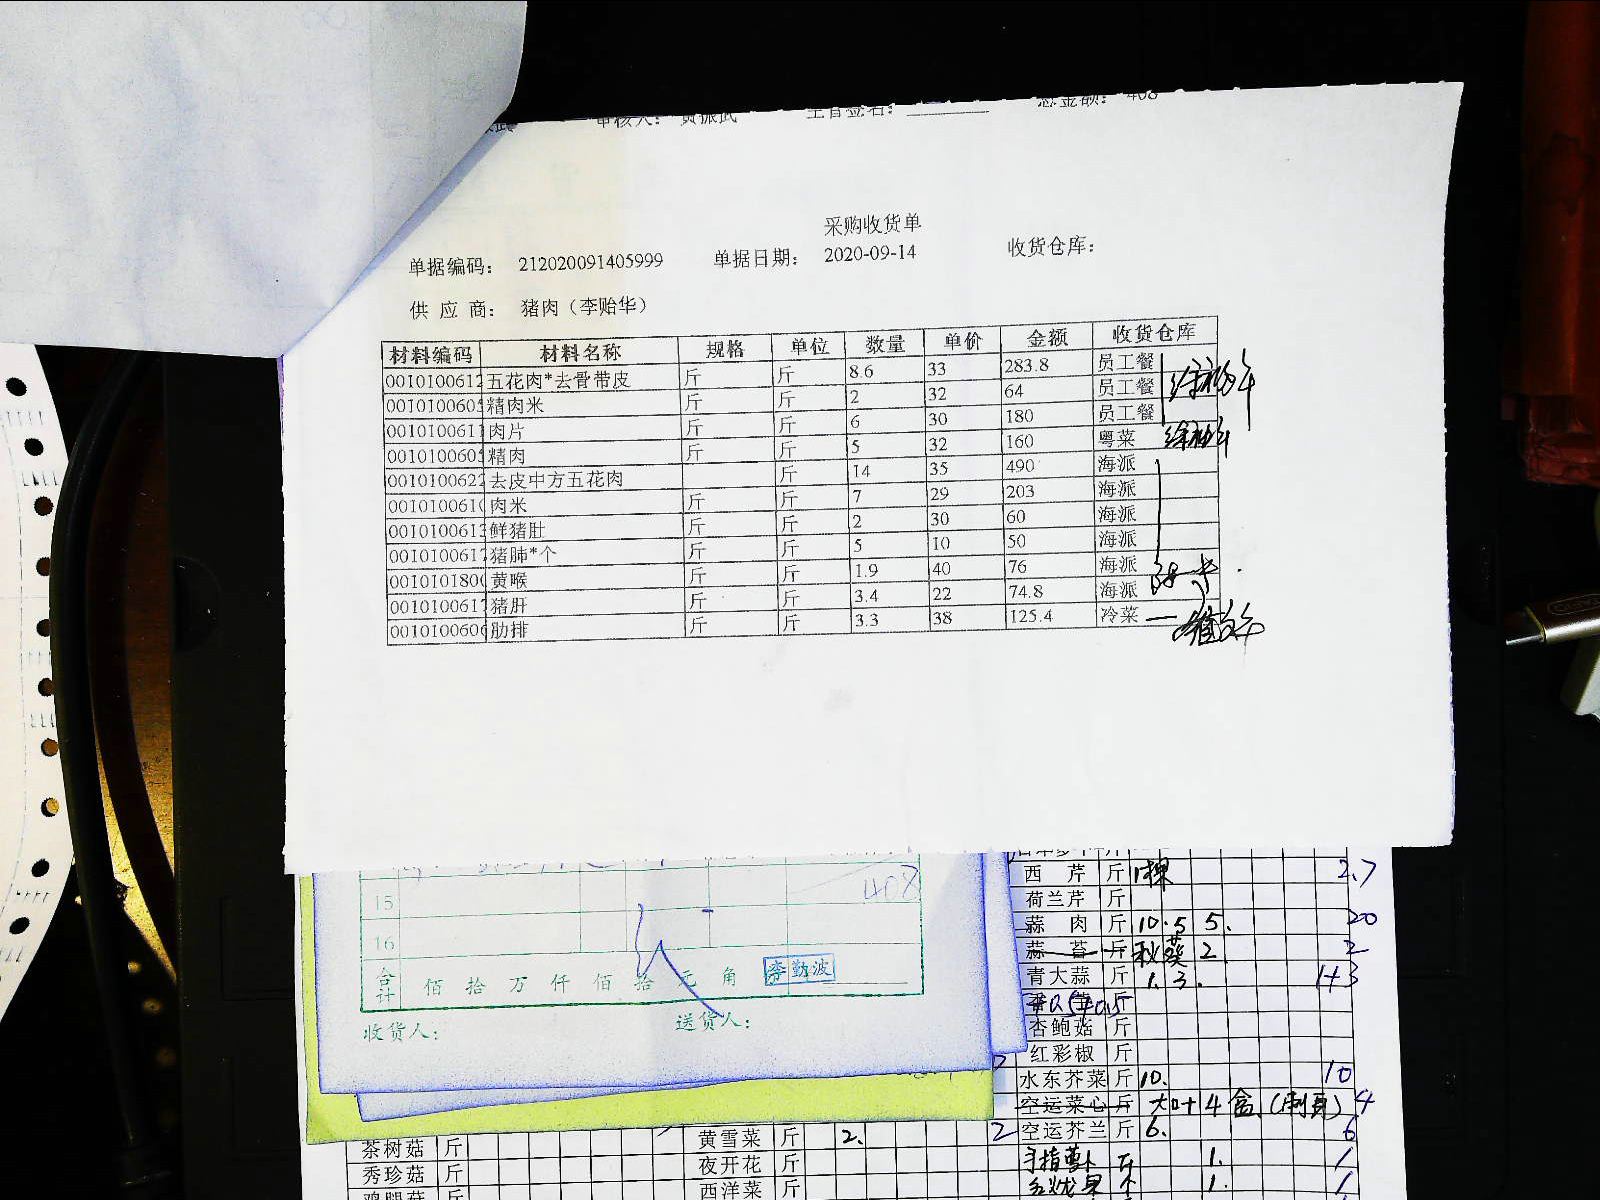 审核人： 黄振武 主管签名： 总金额： 408
采购收货单
单据编码： 212020091405999 单据日期： 2020-09-14 收货仓库：
供 应 商： 猪肉（李贻华）
材料编码 材料名称 规格 单位 数量 单价 金额 收货仓库
0010100612 五花肉*去骨带皮 斤 斤 8.6 33 283.8 员工餐
001010060 精肉米 斤 斤 2 32 64 员工餐
001010061 肉片 斤 斤 6 30 180 员工餐
001010060 精肉 斤 斤 5 32 160 粤菜
0010100622 去皮中方五花肉 斤 14 35 490 海派
001010061 肉米 斤 斤 7 29 203 海派
001010061 鲜猪肚 斤 斤 2 30 60 海派
001010061 猪肺*个 斤 斤 5 10 50 海派
001010180 黄喉 斤 斤 1.9 40 76 海派
001010061 猪肝 斤 斤 3.4 22 74.8 海派
001010060 肋排 斤 斤 3.3 38 125.4 冷菜
15 408
16
合计 佰 拾 万 仟 佰 拾 元 角 李勤波
收货人： 送货人：
西 芹 斤 1棵 2.7
荷兰芹 斤
蒜 肉 斤 10.5 5. 20
蒜 苔 斤 秋葵 2 2
青大蒜 斤 1. 3. 1+3
杏鲍菇 斤
红彩椒 斤
水东芥菜 斤 10. 10
空运菜心 斤 大叶 4 盒 4
空运芥兰 斤 6. 6
手指萝卜 斤 1. 1
茶树菇 斤 黄雪菜 斤 2. 2
秀珍菇 斤 夜开花 斤
鸡腿菇 斤 西洋菜 斤